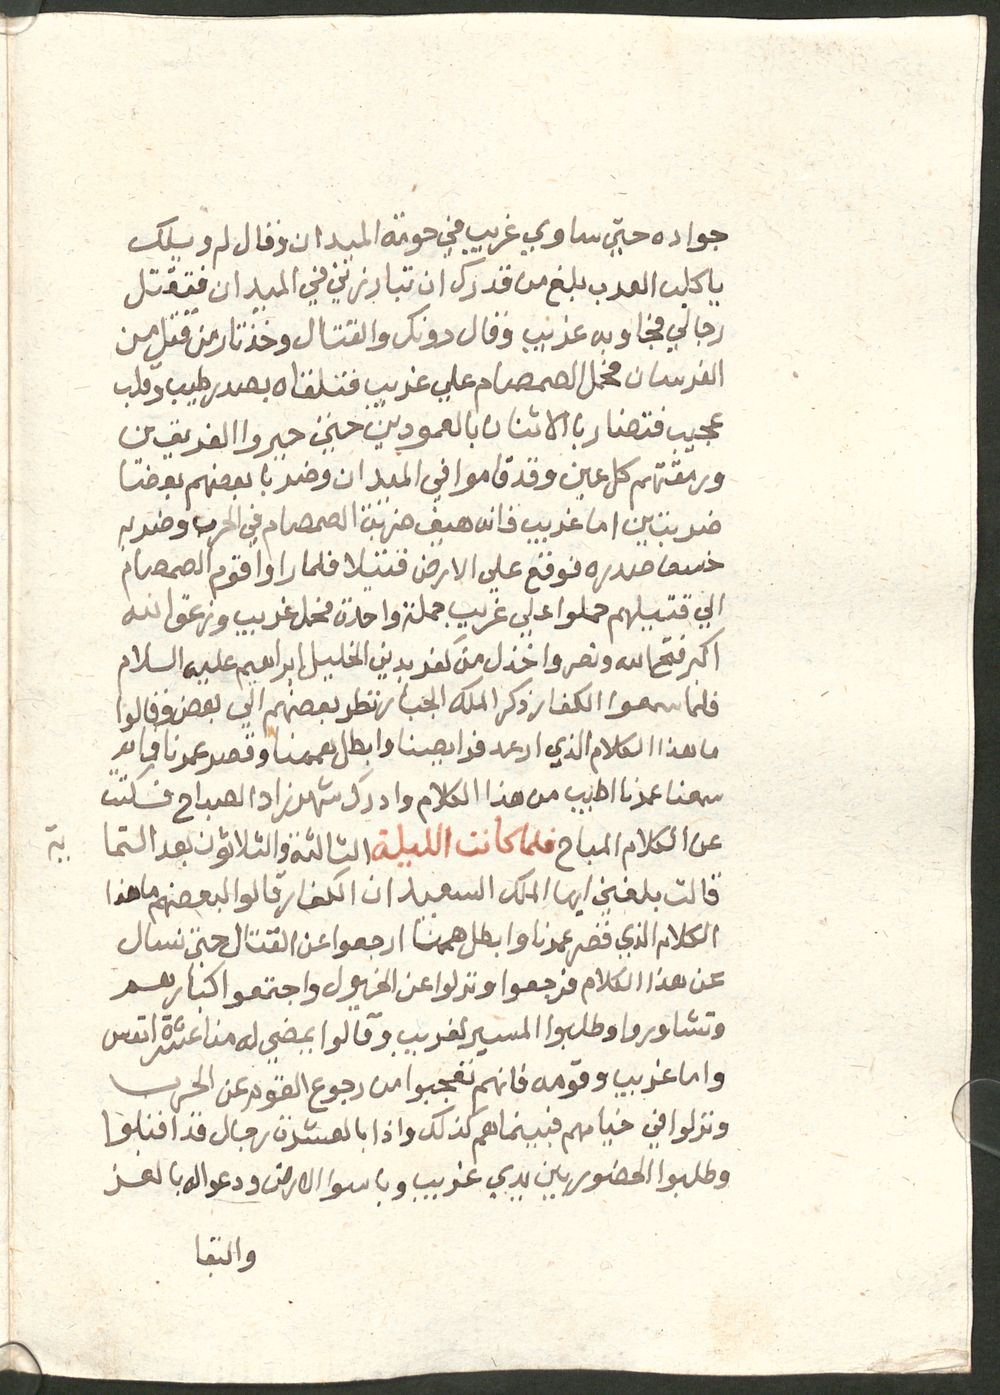 جواده حتي ساوي غريب في حومة الميدان وقال له ويلك
يا كلب العرب بلغ من قدرك ان تبارزني في الميدان فتقتل
رجالي فجاوبه غريب وقال دونك والقتال وخذ تار من قتل من
الفرسان فحمل الصمصام علي غريب فتلقاه بصدر رطيب وقلب
عجيب فتضاربا الاثنان بالعمودين حتي حيروا الفريقين
ورمقتهم كل عين وقد قاموا في الميدان وضربا بعضهم بعضا
ضربتين اما غريب فانه هيف ضربة الصمصام في الحرب وضربه
خسف صدره فوقع علي الارض قتيلا فلما راوا قوم الصمصام
الي قتيلهم حملوا علي غريب حملة واحدة فحمل غريب وزعق الله
اكبر فتح الله ونصر واخذل من كفر بدين الخليل ابراهيم عليه السلام
فلما سمعوا الكفار ذكر الملك الجبار نظر بعضهم الي بعض وقالوا
ما هذا الكلام الذي ارعد فرايصنا وابطل هممنا وقصر عمرنا فما
سمعنا عمرنا اطيب من هذا الكلام وادرك شهرزاد الصباح فسكتت
عن الكلام المباح فلما كانت الليلة الثالثة والثلاثون بعد الستما
ية
قالت بلغني ايها الملك السعيد ان الكفار قالوا لبعضهم ما هذا
الكلام الذي قصر عمرنا وابطل هممنا ارجعوا عن القتال حتي نسال
عن هذا الكلام فرجعوا ونزلوا عن الخيول واجتمعوا اكبارهم
وتشاوروا وطلبوا المسير لغريب وقالوا يمضي له منا عشرة انفس
واما غريب وقومه فانهم تعجبوا من رجوع القوم عن الحرب
ونزلوا في خيامهم فبينما هم كذلك واذا بالعشرة رجال قد اقبلوا
وطلبوا الحضور بين يدي غريب وباسوا الارض ودعوا له بالعز
والبقا